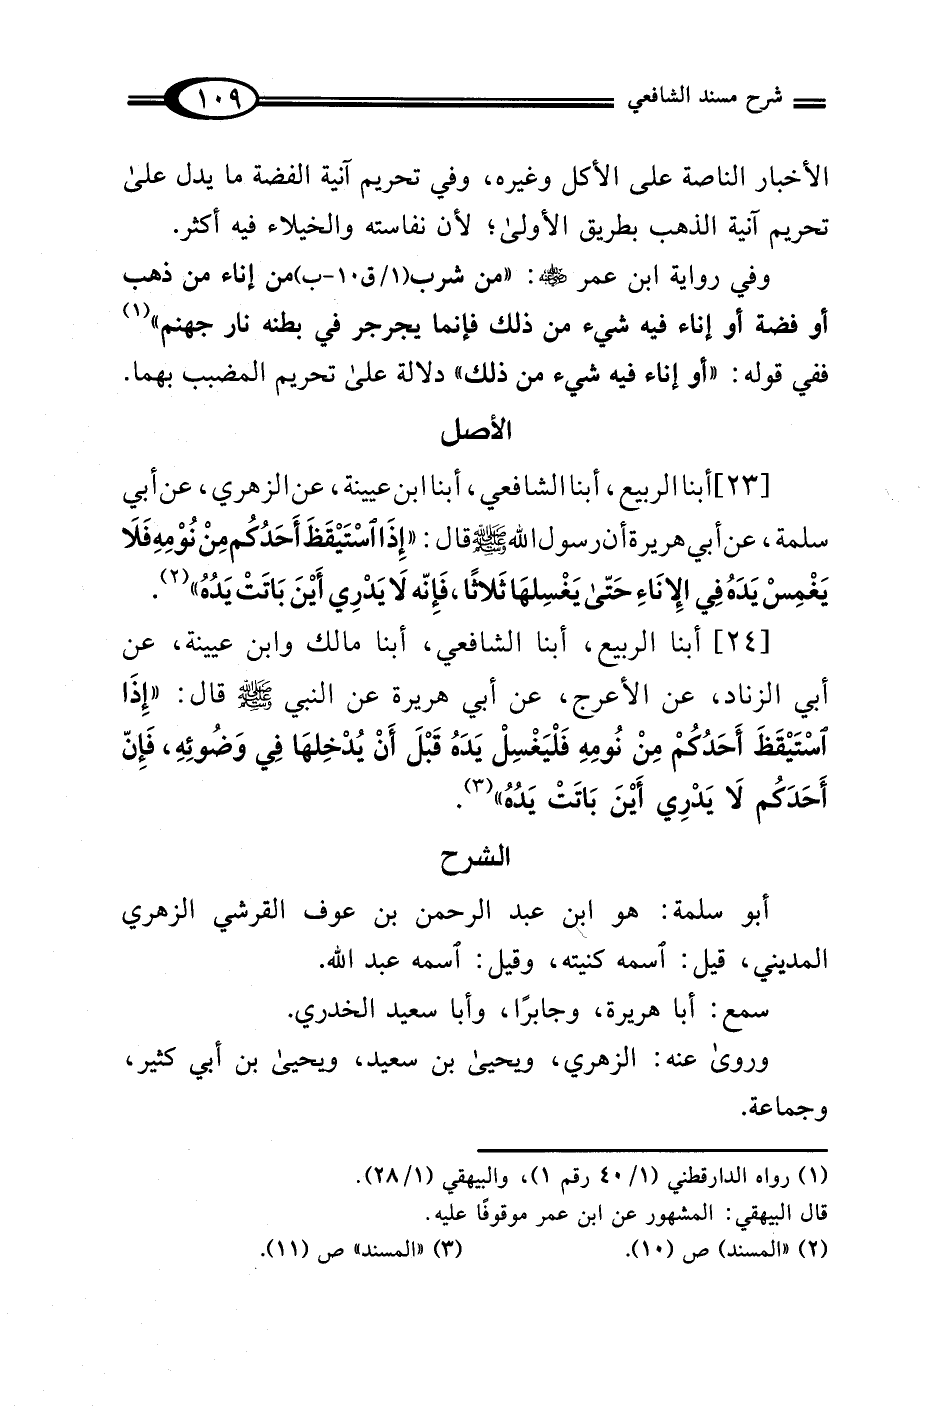 شرح مسند الشافعي ١٠٩
الأخبار الناصة على الأكل وغيره، وفي تحريم آنية الفضة ما يدل علىٰ
تحريم آنية الذهب بطريق الأولىٰ؛ لأن نفاسته والخيلاء فيه أكثر.
وفي رواية ابن عمر رضي الله عنهما: «من شرب(١/ق١٠-ب)من إناء من ذهب
أو فضة أو إناء فيه شيء من ذلك فإنما يجرجر في بطنه نار جهنم»(١)
ففي قوله: «أو إناء فيه شيء من ذلك» دلالة علىٰ تحريم المضبب بهما.
الأصل
[٢٣]أبنا الربيع، أبنا الشافعي، أبنا ابن عيينة، عن الزهري، عن أبي
سلمة، عن أبي هريرة أن رسول الله ﷺ قال: «إِذَا ٱسْتَيْقَظَ أَحَدُكُم مِنْ نُوْمِهِ فَلَا
يَغْمِسْ يَدَهُ فِي الإِنَاءِ حَتّىٰ يَغْسِلهَا ثَلاثًا، فَإِنّه لَا يَدْرِي أَيْنَ بَاتَتْ يَدُهُ»(٢).
[٢٤] أبنا الربيع، أبنا الشافعي، أبنا مالك وابن عيينة، عن
أبي الزناد، عن الأعرج، عن أبي هريرة عن النبي ﷺ قال: «إِذَا
ٱسْتَيْقَظَ أَحَدُكُمْ مِنْ نُومِهِ فَلْيَغْسِلْ يَدَهُ قَبْلَ أَنْ يُدْخِلهَا فِي وَضُوئِهِ، فَإِنّ
أَحَدَكُم لَا يَدْرِي أَيْنَ بَاتَتْ يَدُهُ»(٣).
الشرح
أبو سلمة: هو ابن عبد الرحمن بن عوف القرشي الزهري
المديني، قيل: ٱسمه كنيته، وقيل: ٱسمه عبد الله.
سمع: أبا هريرة، وجابرًا، وأبا سعيد الخدري.
وروىٰ عنه: الزهري، ويحيىٰ بن سعيد، ويحيىٰ بن أبي كثير،
وجماعة.
(١) رواه الدارقطني (١/ ٤٠ رقم ١)، والبيهقي (١/ ٢٨).
قال البيهقي: المشهور عن ابن عمر موقوفًا عليه.
(٢) «المسند) ص (١٠). (٣) «المسند» ص (١١).